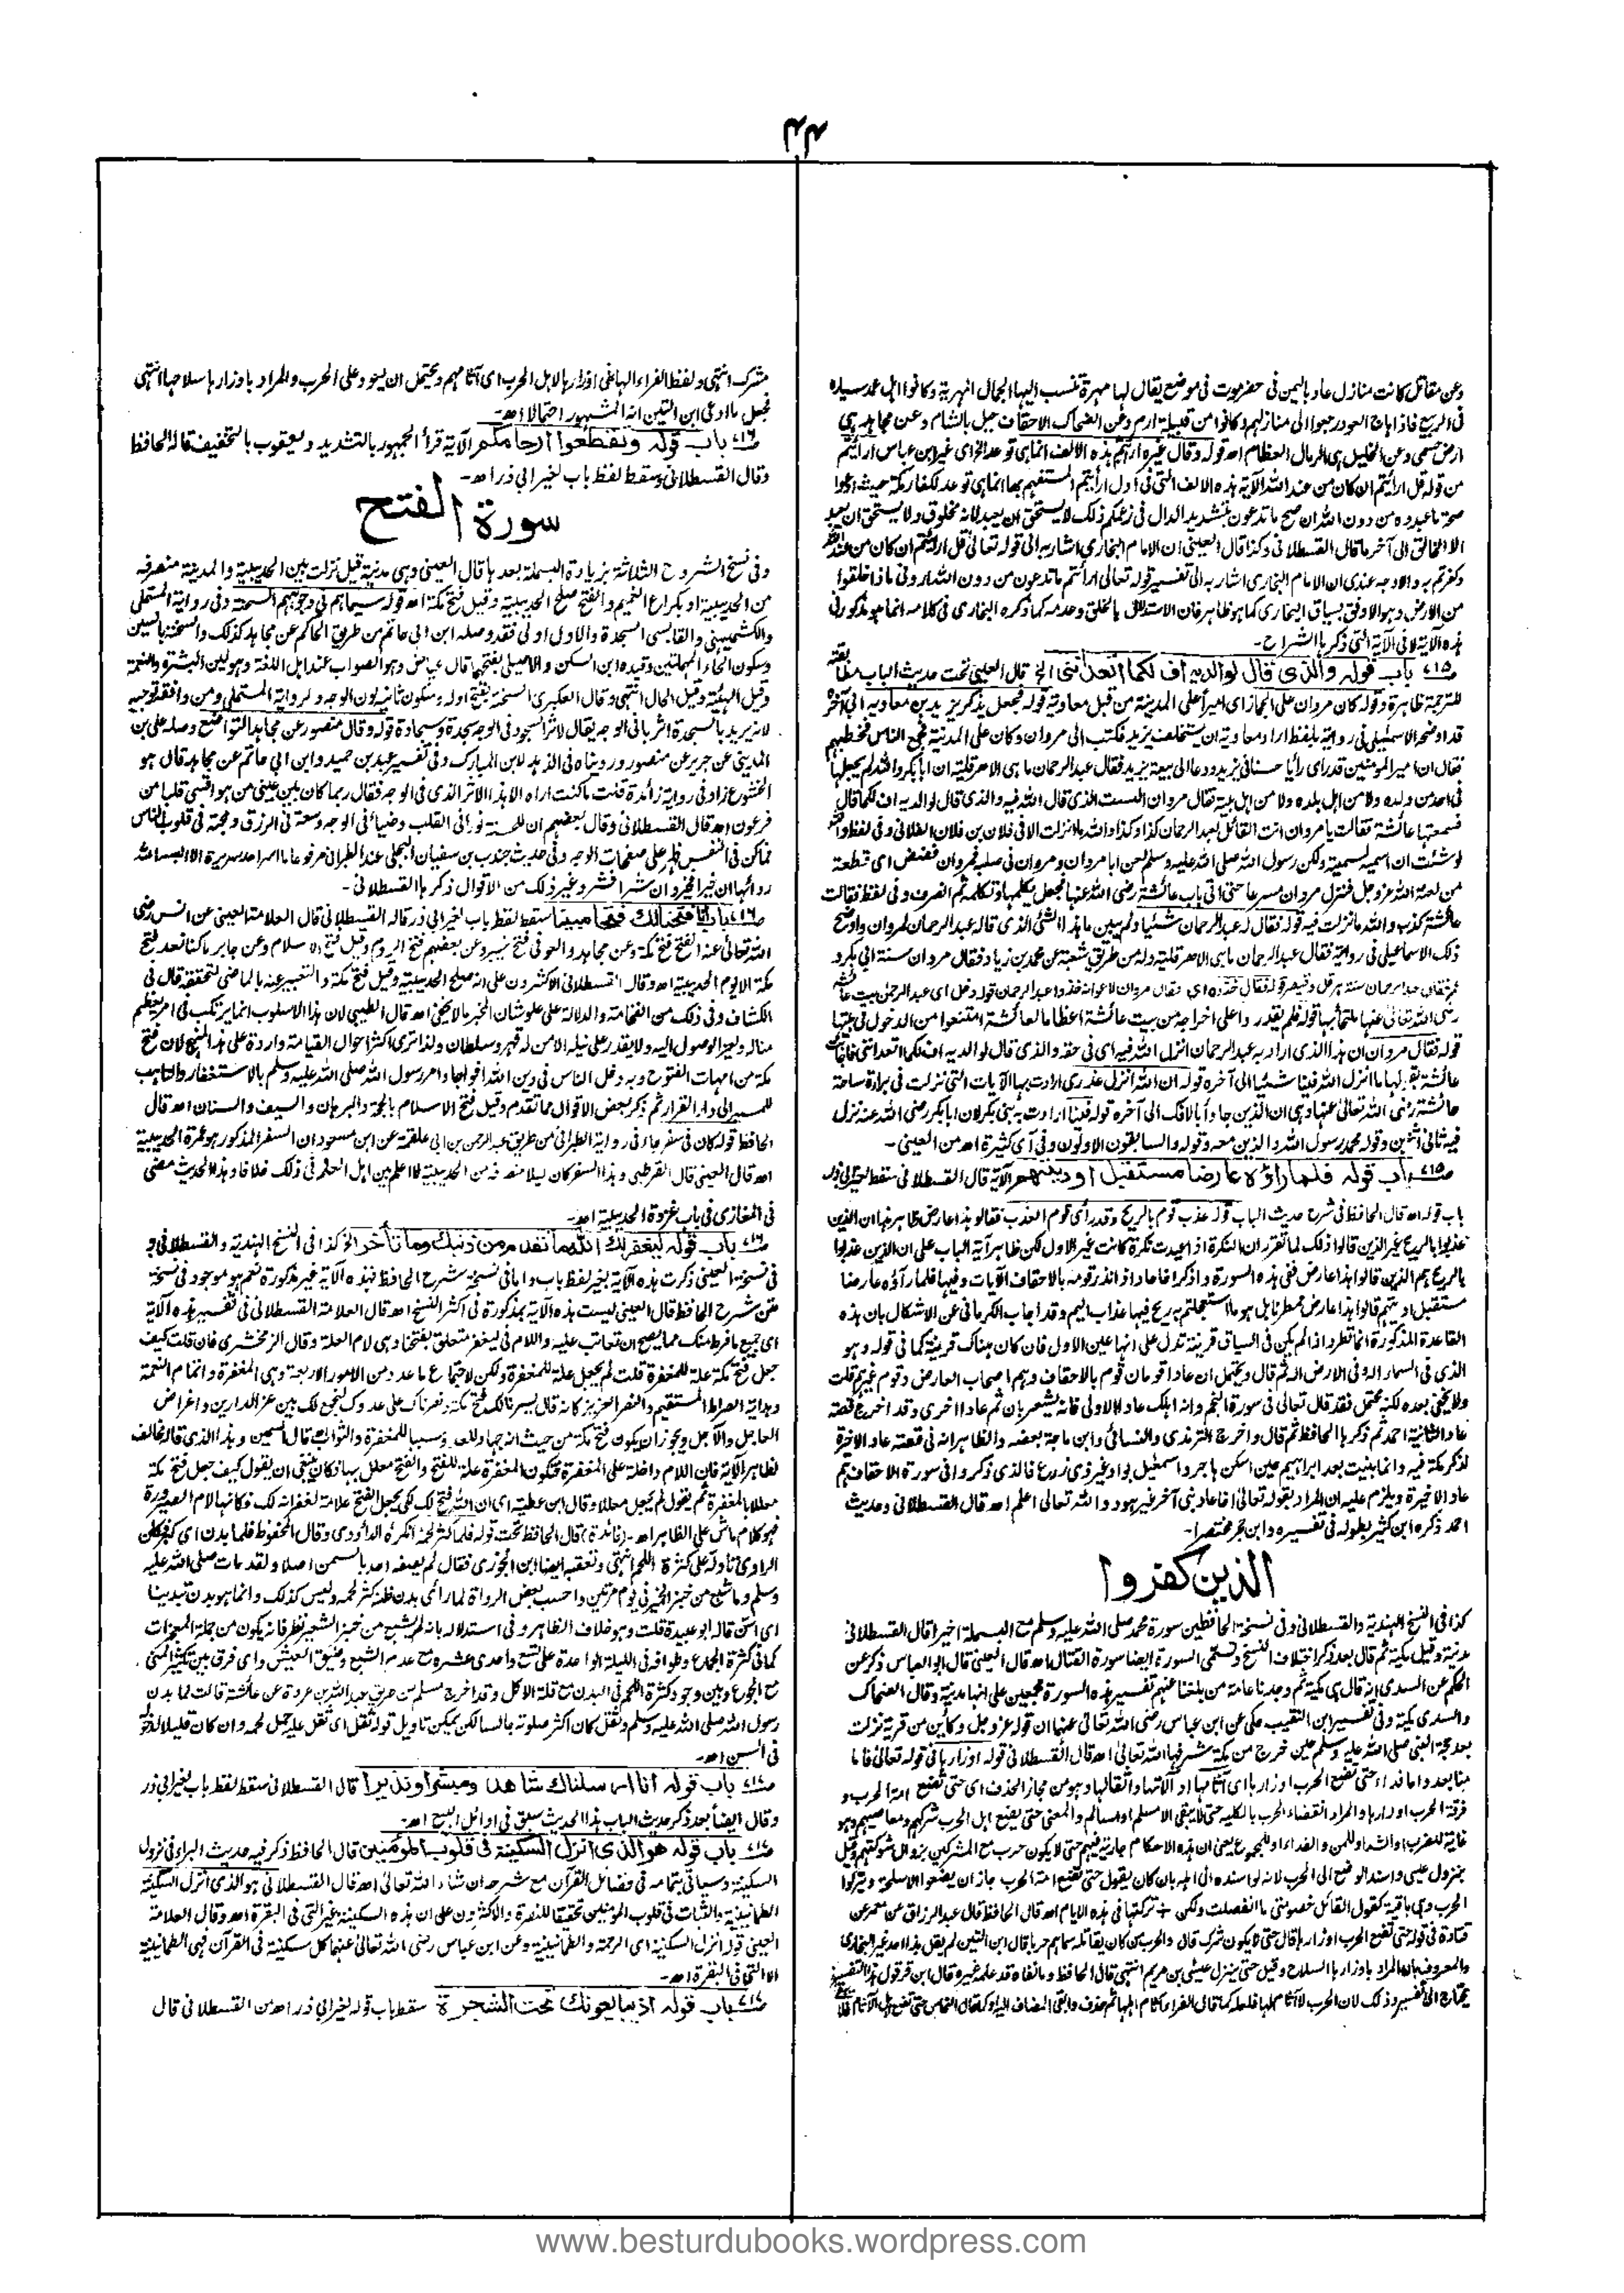 وعن مقاتل كانت منازل عاد باليمن فى حضرموت فى موضع يقال لها مهرة تنسب اليها الجمال المهرية وكانوا اهل عمد سيارة
فى الربيع فاذا هاج العود رجعوا الى منازلهم وكانوا من قبيلة ارم وعن الضحاك الاحقاف جبل بالشام وعن مجاهد هى
ارض حسمى وعن الخليل هى الرمال العظام اھ قوله وقال غيره ارأيتم هذه الالف انما هى توعد الخ اى غير ابن عباس ارأيتم
من قوله قل ارأيتم ان كان من عند الله الآية هذه الالف التى فى اول ارأيتم المستفهم بها انما هى توعد لكفار مكة حيث ادعوا
صحة ما عبدوه من دون الله ان صح ما تدعون بتشديد الدال فى زعمكم ذلك لا يستحق ان يعبد لانه مخلوق ولا يستحق ان يعبد
الا الخالق الى آخر ما قال القسطلانى وكذا قال العينى ان الامام البخارى اشار به الى قوله تعالى قل ارأيتم ان كان من عند الله
وكفرتم به والاوجه عندى ان الامام البخارى اشار به الى تفسير قوله تعالى ارأيتم ما تدعون من دون الله ارونى ماذا خلقوا
من الارض وهو الاوفق بسياق البخارى كما هو ظاهر فان الاستدلال بالخلق وعدمه كما ذكره البخارى فى كلامه انما هو مذكور فى
هذه الآية لا فى الآية التى ذكرها الشراح -
باب قوله والذى قال لوالديه اف لكما اتعداننى الخ قال العينى تحت حديث الباب مطابقته
للترجمة ظاهرة وقوله كان مروان على الحجاز اى اميرا على المدينة من قبل معاوية قوله فجعل يذكر يزيد بن معاوية الى آخره
قد اوضحه الاسمعيلى فى روايته بلفظ اراد معاوية ان يستخلف يزيد فكتب الى مروان وكان على المدينة فجمع الناس فخطبهم
فقال ان امير المؤمنين قد راى رأيا حسنا فى يزيد ودعا الى بيعة يزيد فقال عبد الرحمان ما هى الا هرقلية ان ابا بكر والله لم يجعلها
فى احد من ولده ولا من اهل بلده ولا من اهل بيته فقال مروان الست الذى قال الله فيه والذى قال لوالديه اف لكما قال
فسمعتها عائشة فقالت يا مروان انت القائل لعبد الرحمان كذا وكذا والله ما نزلت الا فى فلان بن فلان الفلانى وفى لفظ والله
لو شئت ان اسميه لسميته ولكن رسول الله صلى الله عليه وسلم لعن ابا مروان ومروان فى صلبه فمروان فضض اى قطعة
من لعنة الله عز وجل فنزل مروان مسرعا حتى اتى باب عائشة رضى الله عنها فجعل يكلمها وتكلمه ثم انصرف وفى لفظ فقالت
عائشة كذب والله ما نزلت فيه قوله فقال له عبد الرحمان شيئا ولم يبين ما هذا الشئ الذى قاله عبد الرحمان لمروان واوضح
ذلك الاسماعيلى فى روايته فقال عبد الرحمان ما هى الا هرقلية وله من طريق شعبة عن محمد بن زياد فقال مروان سنة ابى بكر و
عمر فقال عبد الرحمان سنة هرقل وقيصر قوله فقال خذوه اى فقال مروان لاعوانه خذوا عبد الرحمان قوله دخل اى عبد الرحمن بيت عائشة
رضى الله تعالى عنها ملتجأ بها قوله فلم يقدروا على اخراجه من بيت عائشة اعظاما لعائشة امتنعوا من الدخول فى بيتها
قوله فقال مروان ان هذا الذى اراد به عبد الرحمان انزل الله فيه اى فى حقه والذى قال لوالديه اف لكما اتعداننى فاجابت
عائشة بقولها ما انزل الله فينا شيئا الى آخره قوله ان الله انزل عذرى ارادت بها الآيات التى نزلت فى براءة ساحة
عائشة رضى الله تعالى عنها وهى ان الذين جاءوا بالافك الى آخره قوله فينا ارادت به بنى بكر لان ابا بكر رضى الله عنه نزل
فيه ثانى اثنين وقوله محمد رسول الله والذين معه وقوله والسابقون الاولون وفى آى كثيرة اھ من العينى -
باب قوله فلما رأوه عارضا مستقبل اوديتهم الآية قال القسطلانى سقط لغير ابى ذر
باب قوله اھ قال الحافظ فى شرح حديث الباب قوله عذب قوم بالريح وقد رأى قوم العذاب فقالوا هذا عارض ظاهر هذا ان الذين
عذبوا بالريح غير الذين قالوا ذلك لما تقرر ان النكرة اذا اعيدت نكرة كانت غير الاول لكن ظاهر آية الباب على ان الذين عذبوا
بالريح هم الذين قالوا هذا عارض ففى هذه السورة واذكر اخا عاد اذ انذر قومه بالاحقاف الآيات وفيها فلما رأوه عارضا
مستقبل اوديتهم قالوا هذا عارض ممطرنا بل هو ما استعجلتم به ريح فيها عذاب اليم وقد اجاب الكرمانى عن الاشكال بان هذه
القاعدة المذكورة انما تطرد اذا لم يكن فى السياق قرينة تدل على انها عين الاول فان كان هناك قرينة كما فى قوله وهو
الذى فى السماء اله وفى الارض اله ثم قال ويحتمل ان عادا قومان قوم بالاحقاف وهم اصحاب العارض وقوم غيرهم قلت
ولا يخفى بعده لكنه محتمل فقد قال تعالى فى سورة النجم وانه اهلك عادا الاولى فانه يشعر بان ثم عادا اخرى وقد اخرج قصة
عاد الثانية احمد ثم ذكرها الحافظ ثم قال واخرج الترمذى والنسائى وابن ماجة بعضه والظاهر انه فى قصة عاد الاخرة
لذكر مكة فيه وانما بنيت بعد ابراهيم حين اسكن هاجر واسمعيل بواد غير ذى زرع فالذى ذكروا فى سورة الاحقاف هم
عاد الاخيرة ويلزم عليه ان المراد بقوله تعالى اخا عاد نبى آخر غير هود والله تعالى اعلم اھ قال القسطلانى وحديث
احمد ذكره ابن كثير بطوله فى تفسيره وابن حجر مختصرا -
الذين كفروا
كذا فى النسخ الهندية والقسطلانى وفى نسخة الحافظين سورة محمد صلى الله عليه وسلم مع البسملة اخيرا قال القسطلانى
مدنية وقيل مكية ثم قال بعد ذكر اختلاف النسخ وتسمى السورة ايضا سورة القتال اھ قال العينى قال ابو العباس ذكر عن
الحكم عن السدى انه قال هى مكية ثم وجدنا عامة من بلغنا عنهم تفسير هذه السورة مجمعين على انها مدنية وقال الضحاك
والسدى مكية وفى تفسير ابن النقيب حكى عن ابن عباس رضى الله تعالى عنهما ان قوله عز وجل وكأين من قرية نزلت
بعد حجة النبى صلى الله عليه وسلم حين خرج من مكة شرفها الله تعالى اھ قال القسطلانى قوله اوزارها فى قوله تعالى فاما
منا بعد واما فداء حتى تضع الحرب اوزارها اى آثامها او آلاتها واثقالها وهو من مجاز الحذف اى حتى تضع امة الحرب و
فرقة الحرب اوزارها والمراد انقضاء الحرب بالكلية حتى لا يبقى الا مسلم او مسالم والمعنى حتى يضع اهل الحرب شركهم ومعاصيهم وهو
غاية للضرب او الشد او للمن والفداء او للمجموع يعنى ان هذه الاحكام جارية فيهم حتى لا يكون حرب مع المشركين بزوال شوكتهم وقيل
بنزول عيسى واسند الوضع الى الحرب لانه لو اسنده الى اهله بان كان يقول حتى تضع امة الحرب جاز ان يضعوا الاسلحة ويتركوا
الحرب وهى باقية كقول القائل خصومتى ما انفصلت ولكن تركتها فى هذه الايام اھ قال الحافظ قال عبد الرزاق عن معمر عن
قتادة فى قوله حتى تضع الحرب اوزارها قال حتى لا يكون شرك قال والحرب من كان يقاتله سماهم حربا قال ابن التين لم يقل هذا احد غير البخارى
والمعروف ان المراد باوزارها السلاح وقيل حتى ينزل عيسى بن مريم انتهى قال الحافظ وما نفاه قد علمه غيره وقال ابن قرقول هذا التفسير
يحتاج الى تفسير وذلك لان الحرب لا آثام لها فلعله كما قال الفراء آثام اهلها ثم حذف وابقى المضاف اليه او كما قال النحاس حتى تضع اهل الآثام فلا
مشرك انتهى ولفظ الفراء الهاء فى اوزارها لاهل الحرب اى آثامهم ويحتمل ان يعود على الحرب والمراد باوزارها سلاحها انتهى
فجعل ما ادعى ابن التين انه المشهور احتمالا اھ -
باب قوله وتقطعوا ارحامكم الآية قرأ الجمهور بالتشديد ويعقوب بالتخفيف قاله الحافظ
وقال القسطلانى وسقط لفظ باب لغير ابى ذر اھ -
سورة الفتح
وفى نسخ الشروح الثلاثة بزيادة البسملة بعدها قال العينى وهى مدنية قيل نزلت بين الحديبية والمدينة منصرفه
من الحديبية او بكراع الغميم والفتح صلح الحديبية وقيل فتح مكة اھ قوله سيماهم فى وجوههم السحنة وفى رواية المستملى
والكشميهنى والقابسى السجدة والاول اولى فقد وصله ابن ابى حاتم من طريق الحاكم عن مجاهد كذلك والسحنة بالسين
وسكون الحاء المهملتين وقيده ابن السكن والاصيلى بفتحها قال عياض وهو الصواب عند اهل اللغة وهو لين البشرة والنعمة
وقيل الهيئة وقيل الحال انتهى وقال العكبرى السحنة بفتح اوله وسكون ثانيه لون الوجه ولرواية المستملى ومن وافقه توجيه
لانه يريد بالسجدة اثرها فى الوجه يقال لاثر السجود فى الوجه سجدة وسجادة قوله وقال منصور عن مجاهد التواضع وصله على بن
المدينى عن جرير عن منصور ورويناه فى الزهد لابن المبارك وفى تفسير عبد بن حميد وابن ابى حاتم عن مجاهد قال هو
الخشوع زاد فى رواية زائدة قلت ما كنت اراه الا هذا الاثر الذى فى الوجه فقال ربما كان بين عينى من هو اقسى قلبا من
فرعون اھ قال القسطلانى وقال بعضهم ان للحسنة نورا فى القلب وضياء فى الوجه وسعة فى الرزق ومحبة فى قلوب الناس
فما كمن فى النفس ظهر على صفحات الوجه وفى حديث جندب بن سفيان البجلى عند الطبرانى مرفوعا ما اسر احد سريرة الا البسه الله
ردائها ان خيرا فخير وان شرا فشر وغير ذلك من الاقوال ذكرها القسطلانى -
باب انا فتحنا لك فتحا مبينا سقط لفظ باب لغير ابى ذر قاله القسطلانى قال العلامة العينى عن انس رضى
الله تعالى عنه الفتح فتح مكة وعن مجاهد والعوفى فتح خيبر وعن بعضهم فتح الروم وقيل فتح الاسلام وعن جابر ما كنا نعد فتح
مكة الا يوم الحديبية اھ وقال القسطلانى الاكثرون على انه صلح الحديبية وقيل فتح مكة والتعبير عنه بالماضى لتحققه قال فى
الكشاف وفى ذلك من الفخامة والدلالة على علو شان المخبر ما لا يخفى اھ قال الطيبى لان هذا الاسلوب انما يرتكب فى امر يعظم
مناله ويعز الوصول اليه ولا يقدر على نيله الا من له قهر وسلطان ولذا ترى اكثر احوال القيامة واردة على هذا المنهج لان فتح
مكة من امهات الفتوح وبه دخل الناس فى دين الله افواجا وامر رسول الله صلى الله عليه وسلم بالاستغفار والتاهب
للمسير الى دار القرار ثم ذكر بعض الاقوال مما تقدم وقيل فتح الاسلام بالحجة والبرهان والسيف والسنان اھ قال
الحافظ قوله كان فى سفر جاء فى رواية الطبرانى من طريق عبد الرحمن بن ابى علقمة عن ابن مسعود ان السفر المذكور هو عمرة الحديبية
اھ قال العينى قال القرطبى وهذا السفر كان ليلا منصرفه من الحديبية لا اعلم بين اهل العلم فى ذلك خلافا وهذا الحديث مضى
فى المغازى فى باب غزوة الحديبية اھ -
باب قوله ليغفر لك الله ما تقدم من ذنبك وما تأخر الخ كذا فى النسخ الهندية والقسطلانى و
فى نسخة العينى ذكرت هذه الآية بغير لفظ باب واما فى نسخة شرح الحافظ فهذه الآية غير مذكورة نعم هو موجود فى نسخة
متن شرح الحافظ قال العينى ليست هذه الآية بمذكورة فى اكثر النسخ اھ قال العلامة القسطلانى فى تفسير هذه الآية
اى جميع ما فرط منك مما يصح ان تعاتب عليه واللام فى ليغفر متعلق بفتحنا وهى لام العلة وقال الزمخشرى فان قلت كيف
جعل فتح مكة علة للمغفرة قلت لم يجعل علة للمغفرة ولكن لاجتماع ما عدد من الامور الاربعة وهى المغفرة واتمام النعمة
وهداية الصراط المستقيم والنصر العزيز كانه قال يسرنا لك فتح مكة ونصرناك على عدوك لنجمع لك بين عز الدارين واغراض
العاجل والآجل ويجوز ان يكون فتح مكة من حيث انه جهاد للعدو وسببا للمغفرة والثواب قال السمين وهذا الذى قاله مخالف
لظاهر الآية فان اللام داخلة على المغفرة فتكون المغفرة علة للفتح والفتح معلل بها فكان ينبغى ان يقول كيف جعل فتح مكة
معللا بالمغفرة ثم يقول لم يجعل معللا وقال ابن عطية اى ان الله فتح لك لكى يجعل الفتح علامة لغفرانه لك فكانها لام الصيرورة
فهو كلام ماش على الظاهر اھ - (فائدة) قال الحافظ تحت قوله فلما كثر لحمه انكره الداودى وقال المحفوظ فلما بدن اى كبر فكأن
الراوى تاوله على كثرة اللحم انتهى وتعقبه ايضا ابن الجوزى فقال لم يصفه احد بالسمن اصلا ولقد مات صلى الله عليه
وسلم وما شبع من خبز الخمير فى يوم مرتين واحسب بعض الرواة لما رأى بدن ظنه كثر لحمه وليس كذلك وانما هو بدن تبدينا
اى اسن قاله ابو عبيدة قلت وهو خلاف الظاهر وفى استدلاله بانه لم يشبع من خبز الشعير نظر فانه يكون من جملة المعجزات
كما فى كثرة الجماع وطوافه فى الليلة الواحدة على تسع واحدى عشره مع عدم الشبع وضيق العيش واى فرق بين تكثير المنى
مع الجوع وبين وجود كثرة اللحم فى البدن مع قلة الاكل وقد اخرج مسلم من طريق عبد الله بن عروة عن عائشة قالت لما بدن
رسول الله صلى الله عليه وسلم وثقل كان اكثر صلوته جالسا لكن يمكن تاويل قوله ثقل اى ثقل عليه حمل لحمه وان كان قليلا لدخوله
فى السن اھ -
باب قوله انا ارسلناك شاهدا ومبشرا ونذيرا قال القسطلانى سقط لفظ باب لغير ابى ذر
وقال ايضا بعد ذكر حديث الباب هذا الحديث سبق فى اوائل البيع اھ -
باب قوله هو الذى انزل السكينة فى قلوب المؤمنين قال الحافظ ذكر فيه حديث البراء فى نزول
السكينة وسياتى بتمامه فى فضائل القرآن مع شرحه ان شاء الله تعالى اھ قال القسطلانى هو الذى انزل السكينة
الطمانينة والثبات فى قلوب المؤمنين تحقيقا للنصرة والاكثرون على ان هذه السكينة غير التى فى البقرة اھ وقال العلامة
العينى قوله انزل السكينة اى الرحمة والطمانينة وعن ابن عباس رضى الله تعالى عنهما كل سكينة فى القرآن فهى الطمانينة
الا التى فى البقرة اھ -
باب قوله اذ يبايعونك تحت الشجرة سقط باب قوله لغير ابى ذر اھ من القسطلانى قال
www.besturdubooks.wordpress.com